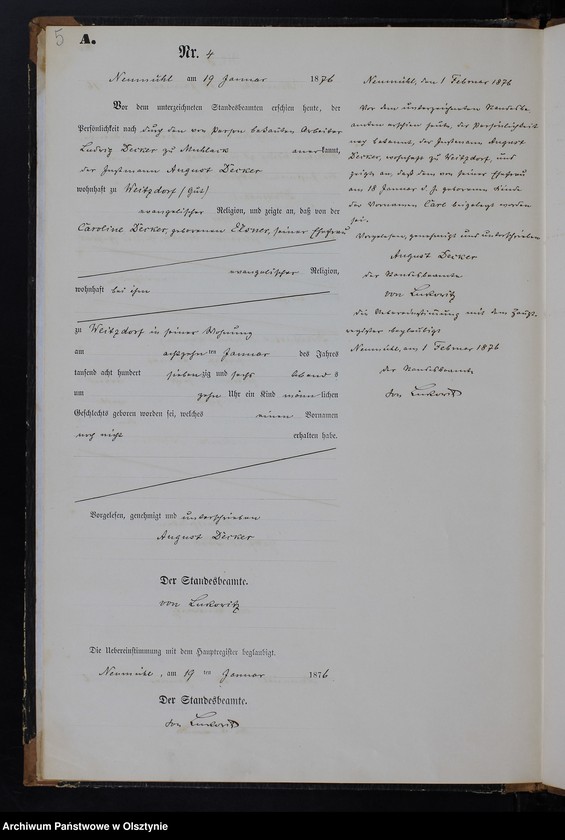 5
A.
Nr. 4
Neumühl am 19 Januar 1876
Vor dem unterzeichneten Standesbeamten erschien heute, der
Persönlichkeit nach durch den von Person bekannten Arbeiter
Ludwig Decker zu Muhlack anerkannt,
der Instmann August Decker
wohnhaft zu Weitzdorf (Gut)
evangelischer Religion, und zeigte an, daß von der
Caroline Decker, geborenen Elsner, seiner Ehefrau
evangelischer Religion,
wohnhaft bei ihm
zu Weitzdorf in seiner Wohnung
am achtzehnten Januar des Jahres
tausend acht hundert siebenzig und sechs Abends
um zehn Uhr ein Kind männlichen
Geschlechts geboren worden sei, welches einen Vornamen
noch nicht erhalten habe.
Vorgelesen, genehmigt und unterschrieben
August Decker
Der Standesbeamte.
von Lukowitz
Die Uebereinstimmung mit dem Hauptregister beglaubigt.
Neumühl, am 19 ten Januar 1876
Der Standesbeamte.
von Lukowitz
Neumühl, den 1 Februar 1876
Vor dem unterzeichneten Standesbe
amten erschien heute, der Persönlichkeit
nach bekannt, der Instmann August
Decker, wohnhaft zu Weitzdorf, und
zeigte an, daß dem von seiner Ehefrau
am 18 Januar d. J. geborenen Kinde
der Vornamen Carl beigelegt worden
sei.
Vorgelesen, genehmigt und unterschrieben
August Decker
der Standesbeamte
von Lukowitz
die Uebereinstimmung mit dem Haupt-
register beglaubigt
Neumühl, am 1 Februar 1876
der Standesbeamte
von Lukowitz
Archiwum Państwowe w Olsztynie